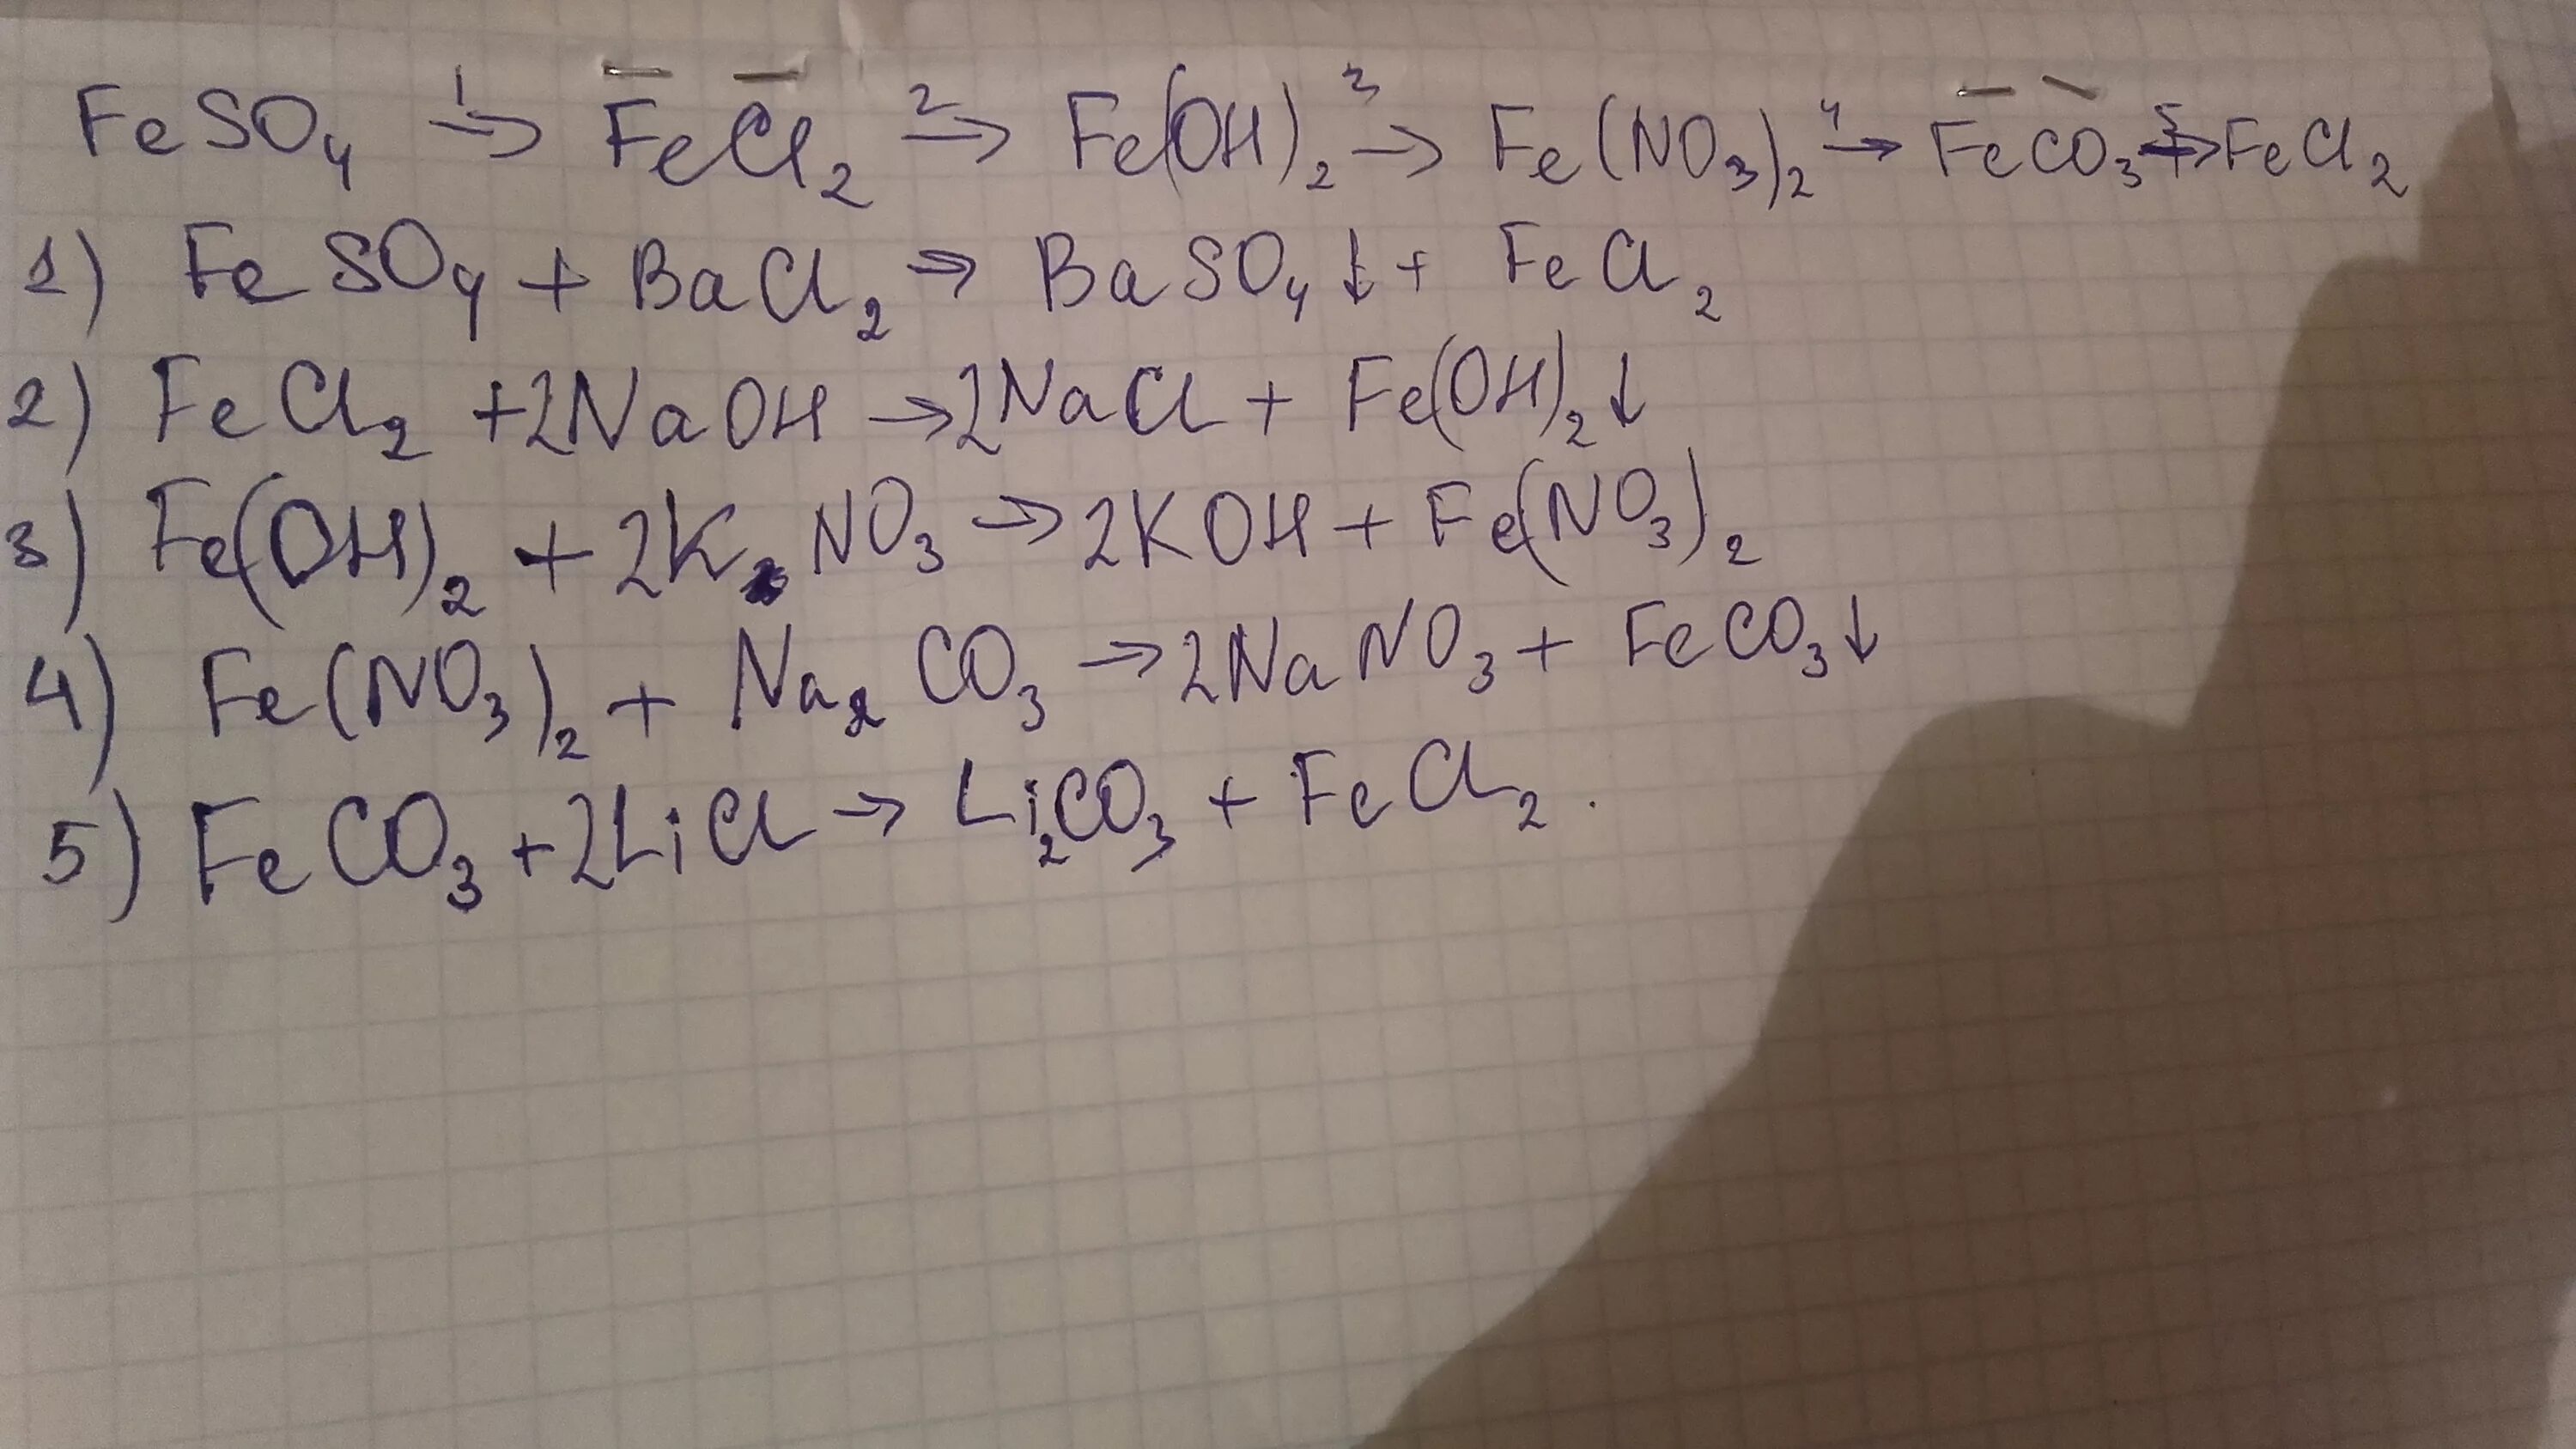 FeSO₄ →¹ FeCl₂ →² Fe(OH)₂ →³ Fe(NO₃)₂ →⁴ FeCO₃ →⁵ FeCl₂
1) FeSO₄ + BaCl₂ → BaSO₄↓ + FeCl₂
2) FeCl₂ + 2NaOH → 2NaCl + Fe(OH)₂↓
3) Fe(OH)₂ + 2KNO₃ → 2KOH + Fe(NO₃)₂
4) Fe(NO₃)₂ + Na₂CO₃ → 2NaNO₃ + FeCO₃↓
5) FeCO₃ + 2LiCl → Li₂CO₃ + FeCl₂.